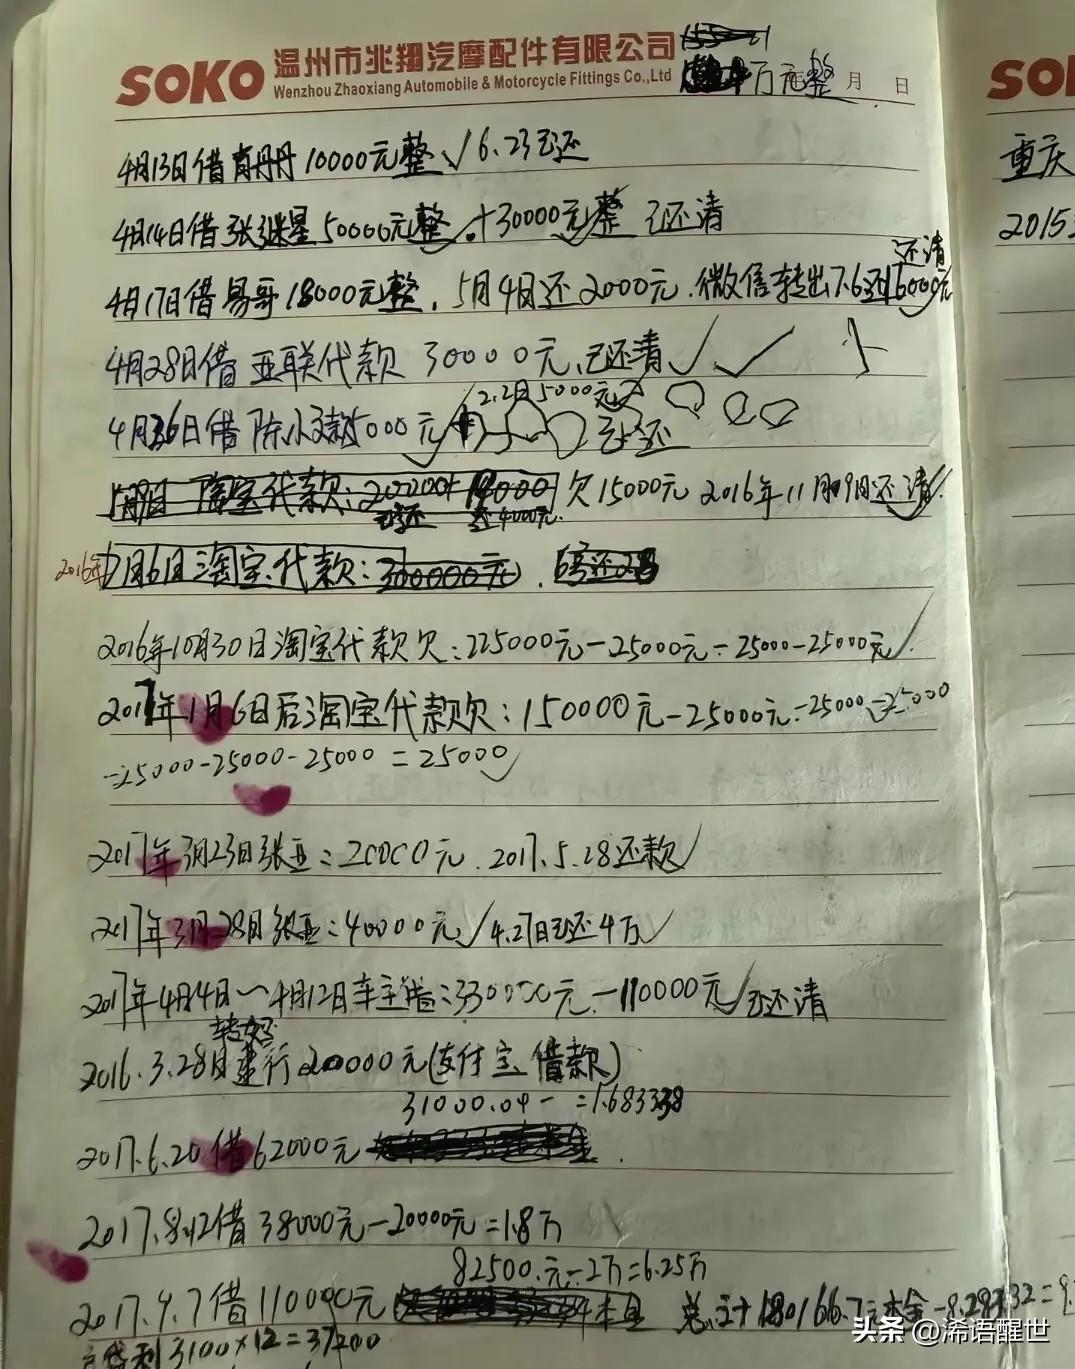 SOKO 温州市兆翔汽摩配件有限公司
Wenzhou Zhaoxiang Automobile & Motorcycle Fittings Co.,Ltd
万元整 月 日
SO
4月13日借肖丹丹10000元整√6.23已还
重庆
4月14日借张继星50000元整√+30000元整 已还清
2015
还清
4月17日借易哥18000元整，5月4日还2000元.微信转出7.6还16000元
4月28日借亚联代款 30000元，已还清√√
2.2日5000元
4月26日借陈小 5000元 已还
1月9日 淘宝代款：200000+ 欠15000元 2016年11月9日还清√
已还 还4000元.
2016年7月6日淘宝代款：300000元.
2016年10月30日淘宝代款欠：225000元-25000元-25000-25000元√
2017年1月6日后淘宝代款欠：150000元-25000元-25000-25000
-25000-25000-25000=25000√
2017年3月23日张亚：20000元.2017.5.28还款√
2017年3月28日张亚：40000元√4.27日已还4万√
2017年4月4日~4月12日车主借：330000元-110000元√已还清
2016.3.28日建行200000元(支付宝借款)
31000.04- =1.683338
2017.6.20借62000元
2017.8.12借38000元-20000元=1.8万
82500.元-2万=6.25万
2017.9.7借110000元 本金 总计180166.7元本金-8.28332=9.
利3100×12=37200
头条@浠语醒世